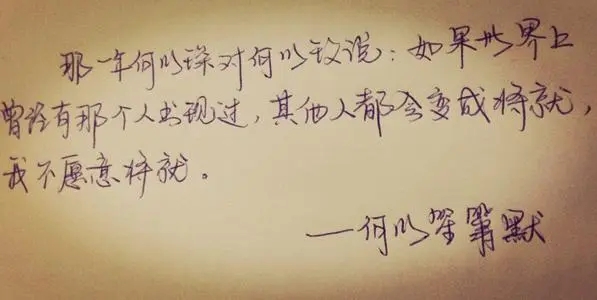 那一年何以琛对何以玫说：如果世界上
曾经有那个人出现过，其他人都会变成将就，
我不愿意将就。
—何以笙箫默